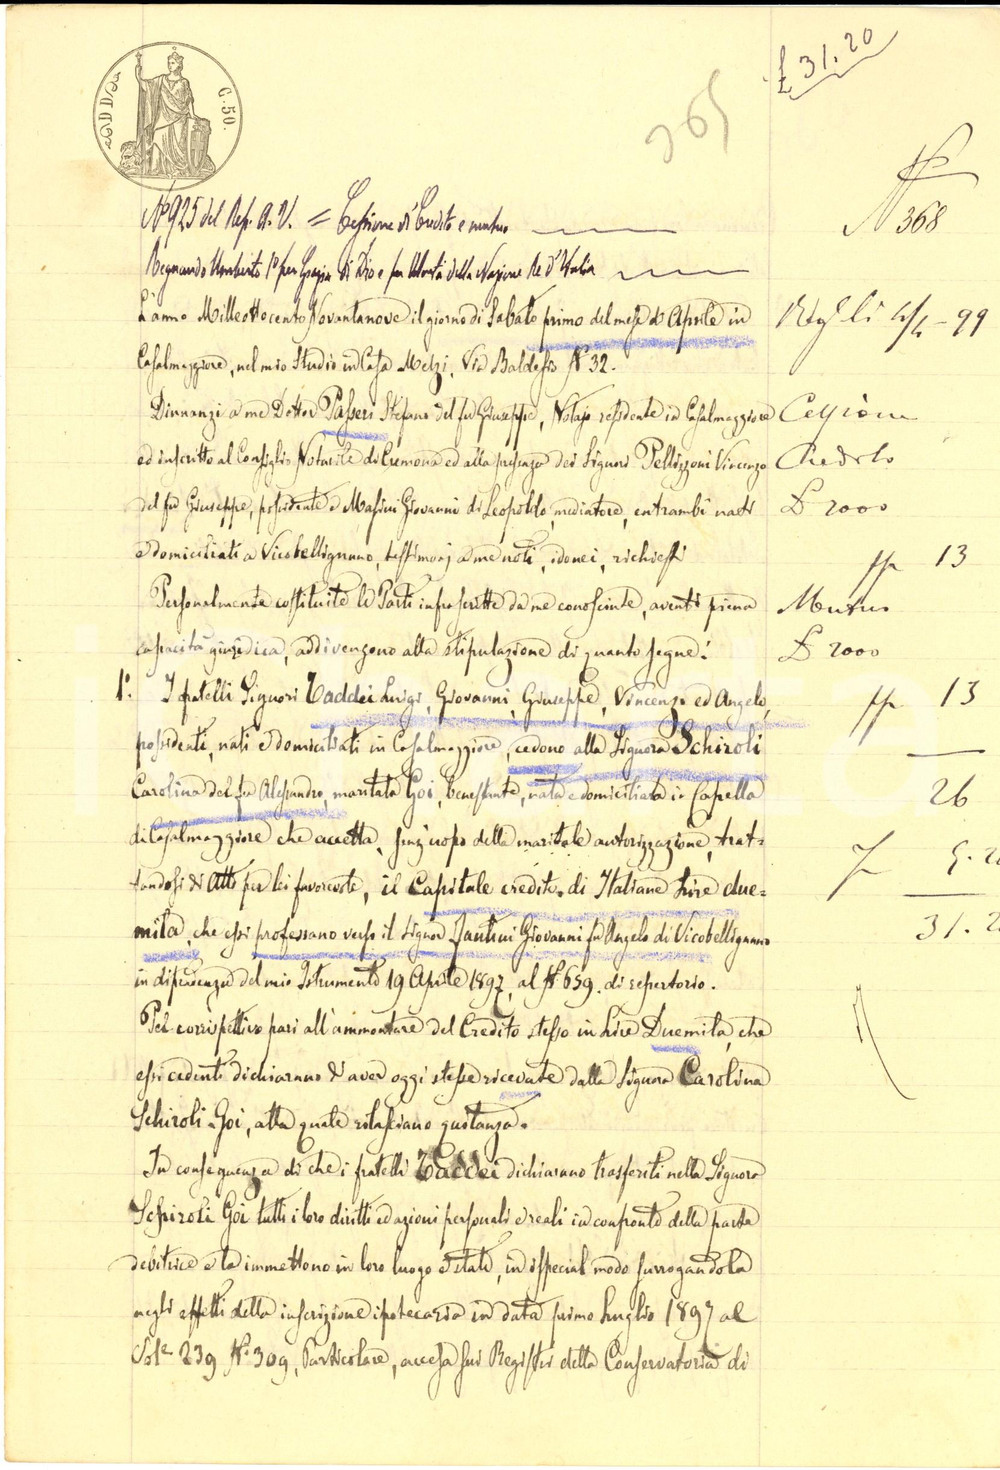 £ 31.20
365
C. 50.
N° 368
N° 925 del Rep. A. V. = Cessione di Credito e mutuo
Regnando Umberto I° per Grazia di Dio e per Volontà della Nazione Re d'Italia
L'anno Milleottocento Novantanove il giorno di Sabato primo del mese di Aprile in
Casalmaggiore, nel mio Studio in Casa Melzi, Via Baldesio N° 32.
Dinnanzi a me Dottor Passeri Stefano del fu Giuseppe, Notajo residente in Casalmaggiore
ed inscritto al Consiglio Notarile di Cremona ed alla presenza dei Signori Pellizzoni Vincenzo
del fu Giuseppe, possidente e Masini Giovanni di Leopoldo, mediatore, entrambi nati
e domiciliati a Vicobellignano, testimonj a me noti, idonei, richiesti
Personalmente costituite le Parti infrascritte da me conosciute, aventi piena
capacità giuridica, addivengono alla stipulazione di quanto segue:
1°. I fratelli Signori Taddei Luigi, Giovanni, Giuseppe, Vincenzo ed Angelo,
possidenti, nati e domiciliati in Casalmaggiore, cedono alla Signora Schiroli
Carolina del fu Alessandro, maritata Goi, benestante, nata e domiciliata in Capella
di Casalmaggiore che accetta, senz'uopo della maritale autorizzazione, trat-
tandosi di Atto per lei favorevole, il Capitale credito di Italiane Lire due=
mila, che essi professano verso il Signor Santini Giovanni fu Angelo di Vicobellignano
in dipendenza del mio Istrumento 19 Aprile 1897, al N° 659. di repertorio.
Pel corrispettivo pari all'ammontare del Credito stesso in Lire Duemila, che
essi cedenti dichiarano di aver oggi stesso ricevute dalla Signora Carolina
Schiroli-Goi, alla quale rilasciano quitanza.
In conseguenza di che i fratelli Taddei dichiarano trasferiti nella Signora
Schiroli Goi tutti i loro diritti ed azioni personali e reali in confronto della parte
debitrice e la immettono in loro luogo e stato, in ispecial modo surrogandola
negli effetti della inscrizione ipotecaria in data primo Luglio 1897 al
Vol.e 239 N° 309, Particolare, accesa sui Registri della Conservatoria di
Reg li 4/4-99
Cessione
Credito
£ 2000
pp 13
Mutuo
£ 2000
pp 13
26
5.20
31.20